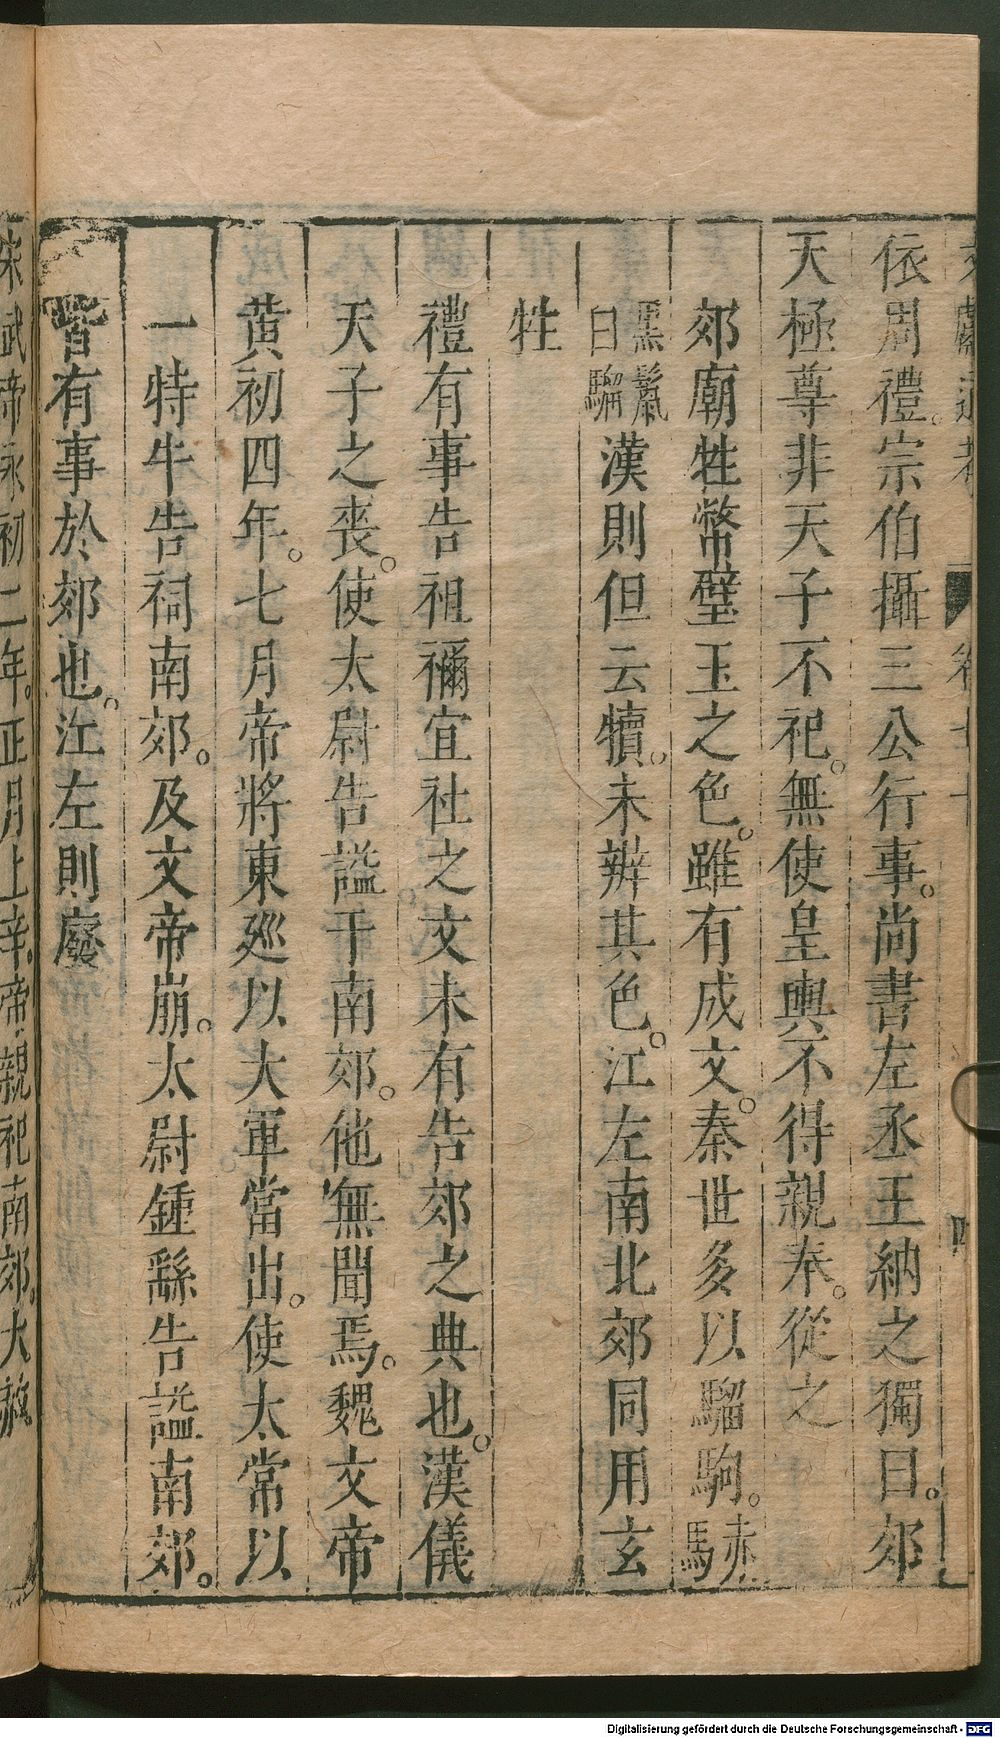 依周禮。宗伯攝三公行事。尚書左丞王納之獨曰。郊
天極尊非天子不祀。無使皇輿不得親奉。從之
郊廟牲幣璧玉之色。雖有成文。秦世多以騮駒。赤馬
黑鬣曰騮漢則但云犢。未辨其色。江左南北郊同用玄
牲
禮有事告祖禰宜社之文未有告郊之典也。漢儀
天子之喪。使太尉告謚于南郊。他無聞焉。魏文帝
黄初四年。七月帝將東廵以大軍當出。使太常以
一特牛告祠南郊。及文帝崩。太尉鍾繇告謚南郊。
皆有事於郊也。江左則廢
宋武帝永初二年。正月上辛。帝親祀南郊。大赦
Digitalisierung gefördert durch die Deutsche Forschungsgemeinschaft - DFG